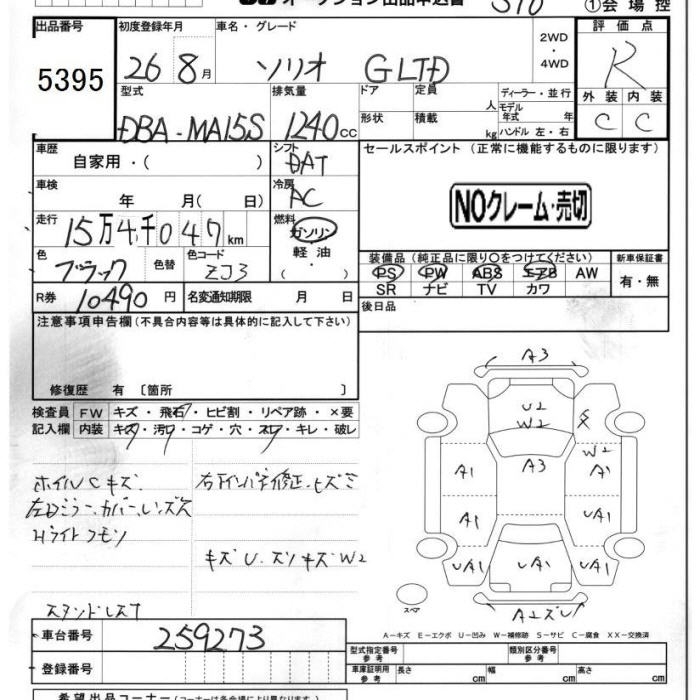 オークション出品申込書 510 ①会場控
出品番号 初度登録年月 車名・グレード 2WD・4WD 評価点
5395 26 8月 ソリオ G LTD R
型式 排気量 ドア 定員 人 ディーラー・並行 外装 内装
DBA-MA15S 1240cc 形状 積載 kg モデル年式 年 ハンドル 左・右 C C
車歴 自家用・( ) シフト DAT セールスポイント (正常に機能するものに限ります)
車検 年 月( 日) 冷房 AC
NOクレーム・売切
走行 15万4千047km 燃料 ガソリン・軽油・( )
色 ブラック 色替 色コード ZJ3
装備品 (純正品に限り○をつけてください) 新車保証書
PS PW ABS エアB AW 有・無
SR ナビ TV カワ
R券 10490円 名変通知期限 月 日
後日品
注意事項申告欄 (不具合内容等は具体的に記入して下さい)
修復歴 有 〔箇所 〕
検査員記入欄 FW キズ・飛石・ヒビ割・リペア跡・×要
内装 キズ・汚レ・コゲ・穴・スレ・キレ・破レ
ホイルCキズ 右下インパネ修正、ヒズミ
左ドミラーカバー、レンズ欠
Hライトクモリ
キズU.スリキズW2
スタンドレスT
A3
U2
W2
W2
A1 A3 A1
A1 UA1
UA1 UA1 UA1
スペア
A2ズレ
A-キズ E-エクボ U-凹み W-補修跡 S-サビ C-腐食 XX-交換済
車台番号 259273
型式指定番号 参考 類別区分番号 参考
登録番号
車庫証明用 参考 長さ cm 幅 cm 高さ cm
希望出品コーナー